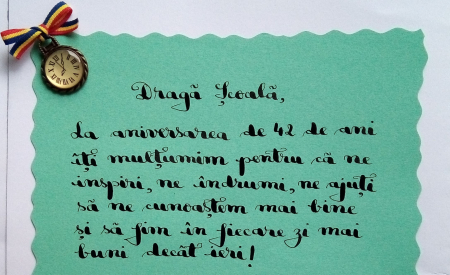 Dragă Școală,
La aniversarea de 42 de ani
îți mulțumim pentru că ne
inspiri, ne îndrumi, ne ajuți
să ne cunoaștem mai bine
și să fim în fiecare zi mai
buni decât ieri!